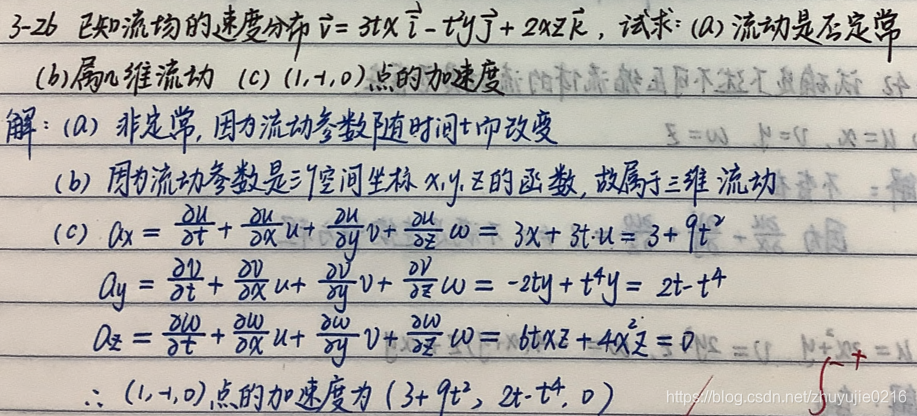 3-26 已知流场的速度分布 v⃗ = 3tx i⃗ - t²y j⃗ + 2xz k⃗, 试求: (a) 流动是否定常
(b) 属几维流动 (c) (1,-1,0) 点的加速度
解: (a) 非定常, 因为流动参数随时间t而改变
(b) 因为流动参数是三个空间坐标 x, y, z 的函数, 故属于三维流动
(c) ax = ∂u/∂t + ∂u/∂x u + ∂u/∂y v + ∂u/∂z w = 3x + 3t·u = 3 + 9t²
ay = ∂v/∂t + ∂v/∂x u + ∂v/∂y v + ∂v/∂z w = -2ty + t⁴y = 2t - t⁴
az = ∂w/∂t + ∂w/∂x u + ∂w/∂y v + ∂w/∂z w = 6txz + 4x²z = 0
∴ (1,-1,0) 点的加速度为 (3+9t², 2t-t⁴, 0)
https://blog.csdn.net/zhuyujie0216